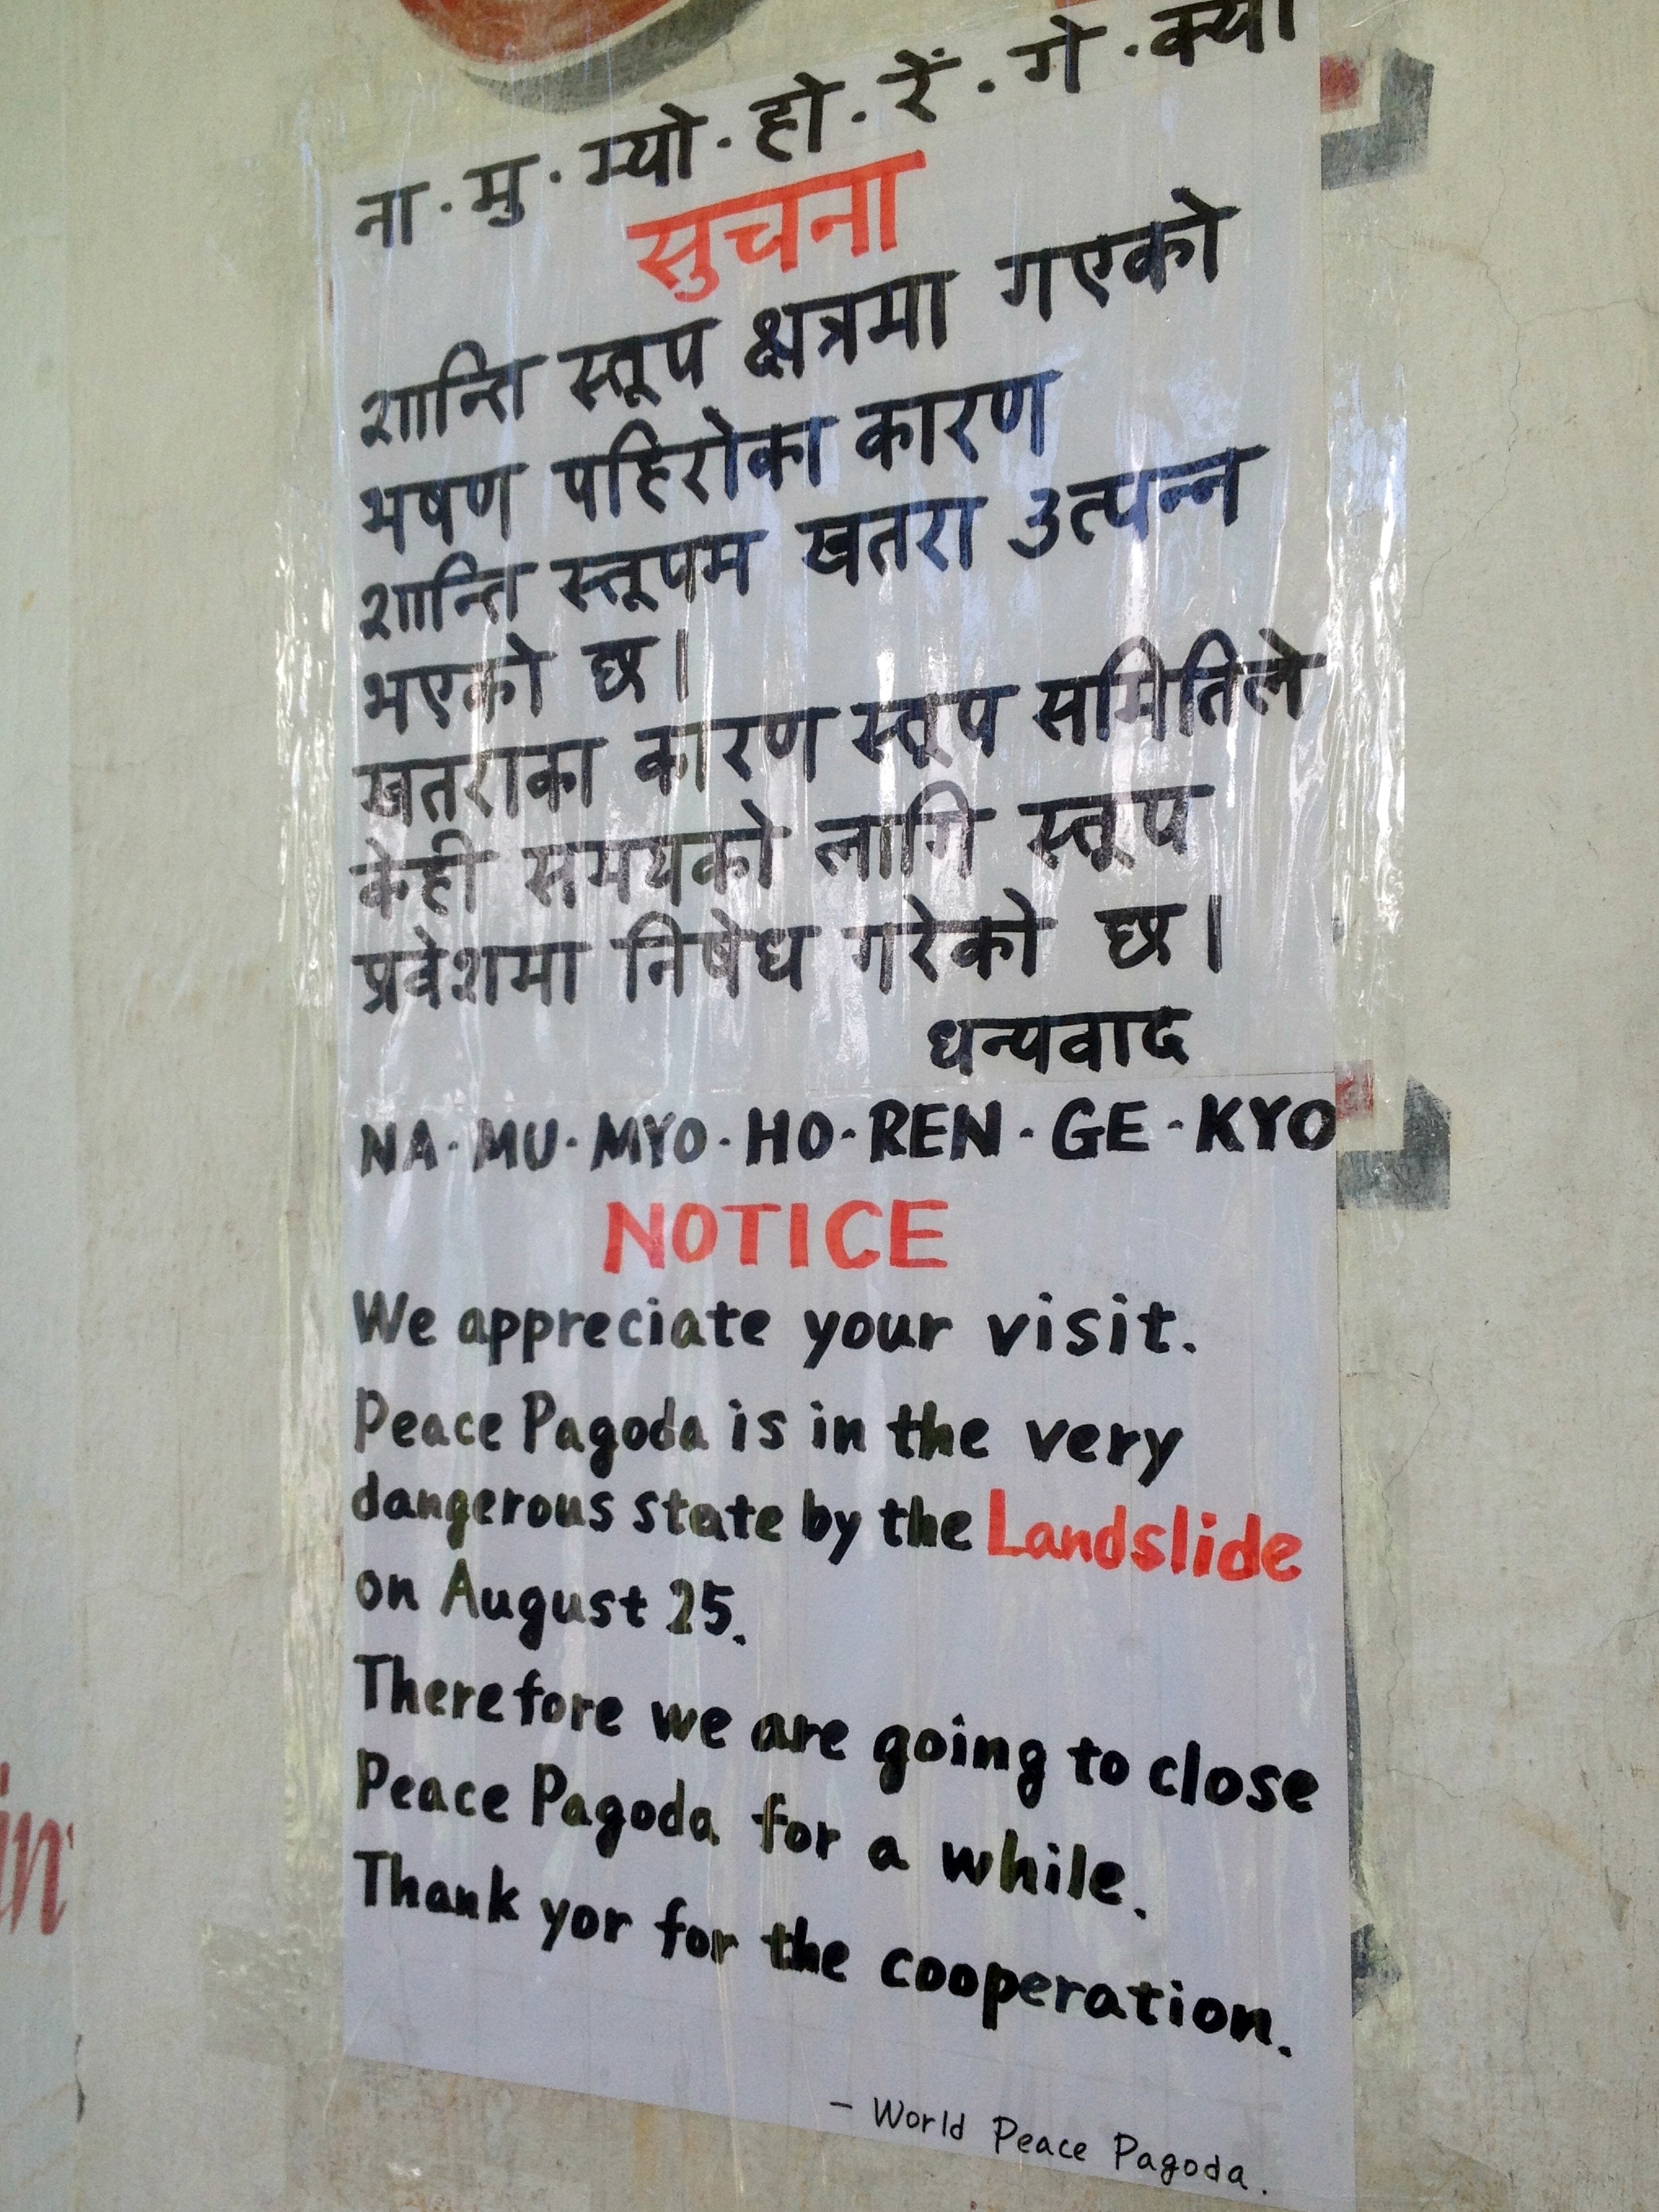 ना · मु · म्यो · हो · रें · गे · क्यो
सुचना
शान्ति स्तूप क्षत्रमा गएको
भषण पहिरोका कारण
शान्ति स्तूपम खतरा उत्पन्न
भएको छ।
खतराका कारण स्तूप समितिले
केही समयको लागि स्तूप
प्रवेशमा निषेध गरेको छ।
धन्यवाद
NA · MU · MYO · HO · REN · GE · KYO
NOTICE
We appreciate your visit.
Peace Pagoda is in the very
dangerous state by the Landslide
on August 25.
Therefore we are going to close
Peace Pagoda for a while.
Thank yor for the cooperation.
– World Peace Pagoda.